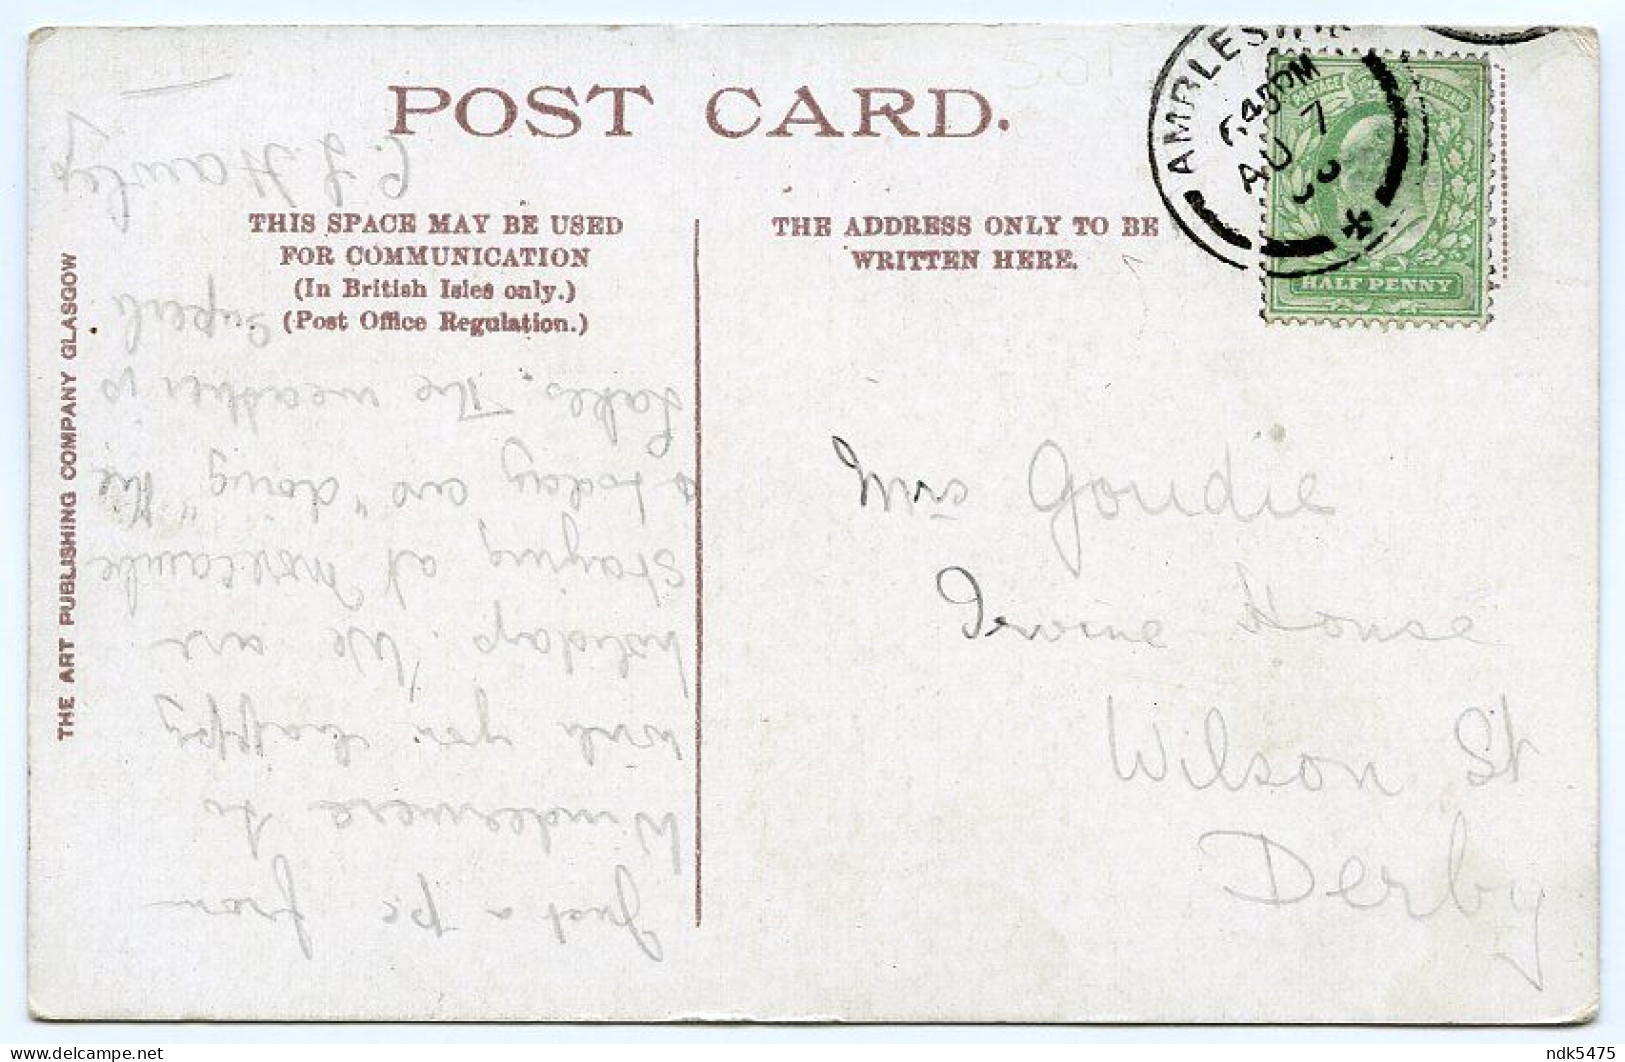 POST CARD.
THIS SPACE MAY BE USED
FOR COMMUNICATION
(In British Isles only.)
(Post Office Regulation.)
THE ADDRESS ONLY TO BE
WRITTEN HERE.
THE ART PUBLISHING COMPANY GLASGOW
AMBLESIDE
AU 7
POSTAGE
HALF PENNY
Mrs Goudie
Irvine House
Wilson St
Derby
Just a pc from
Windermere to
wish you happy
holidays. We are
staying at Morecambe
& today are "doing" the
Lakes. The weather is
superb
Hawley
delcampe.net
ndk5475